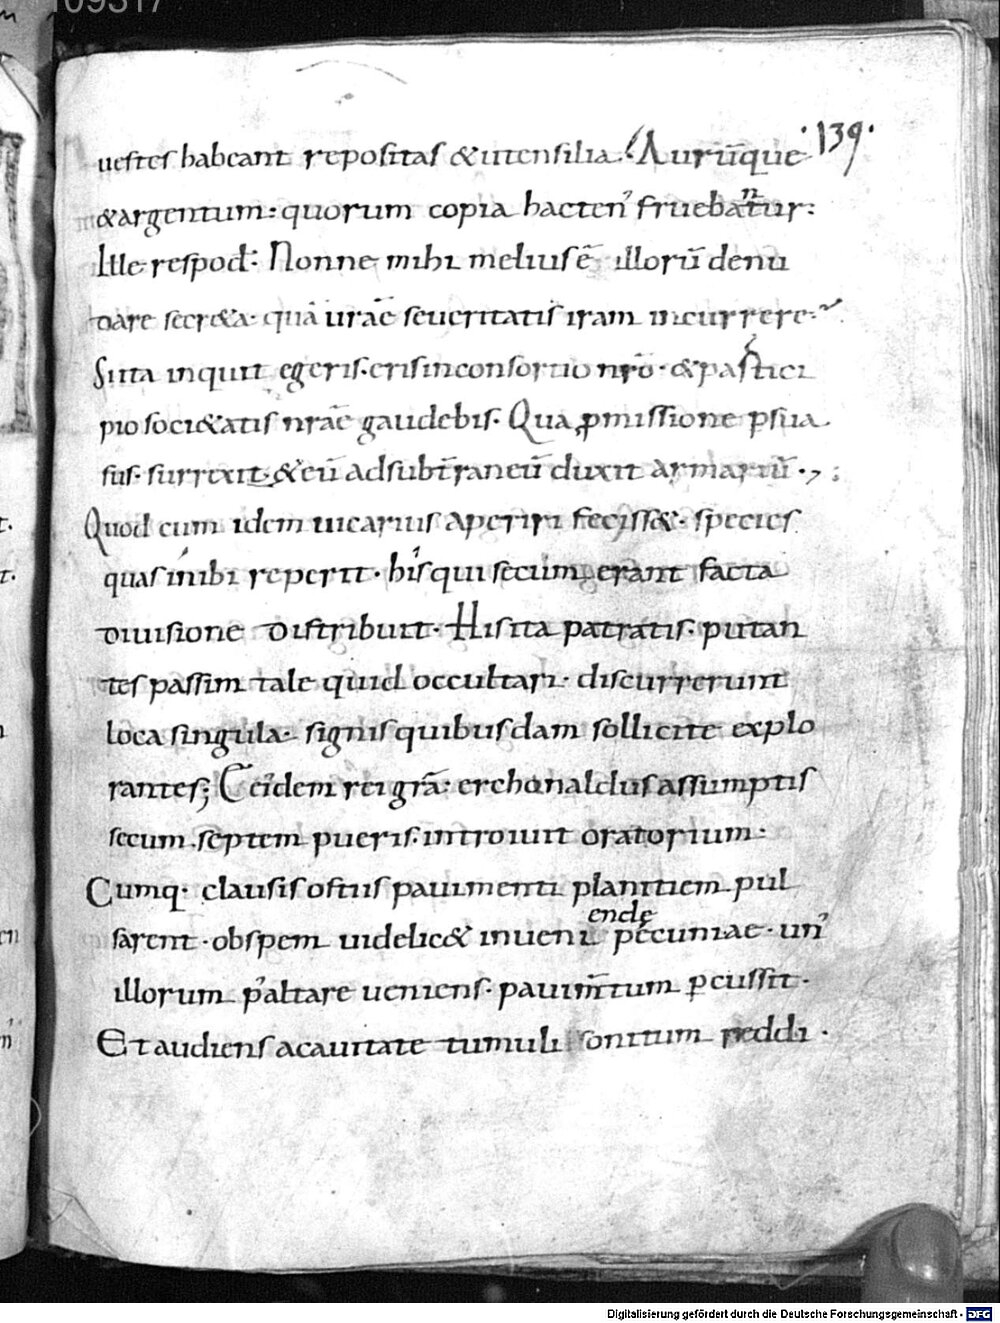 109317
·139·
uestes habeant repositas &utensilia. Aurūque
&argentum: quorum copia hacten᾿ fruebatur:
n
Ille respod̄: Nonne mihi melius ē illorū denu
dare secr&a· quā urāe seueritatis iram incurrere·
Si ita inquit egeris· eris in consortio nr̄o· &parti ci
pio soci&atis nrāe gaudebis· Qua ꝓmissione ꝑsua
sus· surrexit· & eū ad subt̄raneū duxit armariū·
Quod cum idem uicarius aperiri feciss&· species
quas inibi reperit· his qui secum erant facta
diuisione distribuit· His ita patratis· putan
tes passim tale quid occultari· discurrerunt
loca singula· signis quibusdam sollicite explo
rantes; eidem rei grā· erchonaldus assumptis
secum septem pueris· introiuit oratorium·
Cumq· clausis ostiis pauimenti planitiem pul
sarent· ob spem uidelic& inueni pecuniae· un᾿
endę
illorum p᾿ altare ueniens· pauim̄tum ꝑcussit·
Et audiens a cauitate tumuli sonitum reddi·
Digitalisierung gefördert durch die Deutsche Forschungsgemeinschaft - DFG